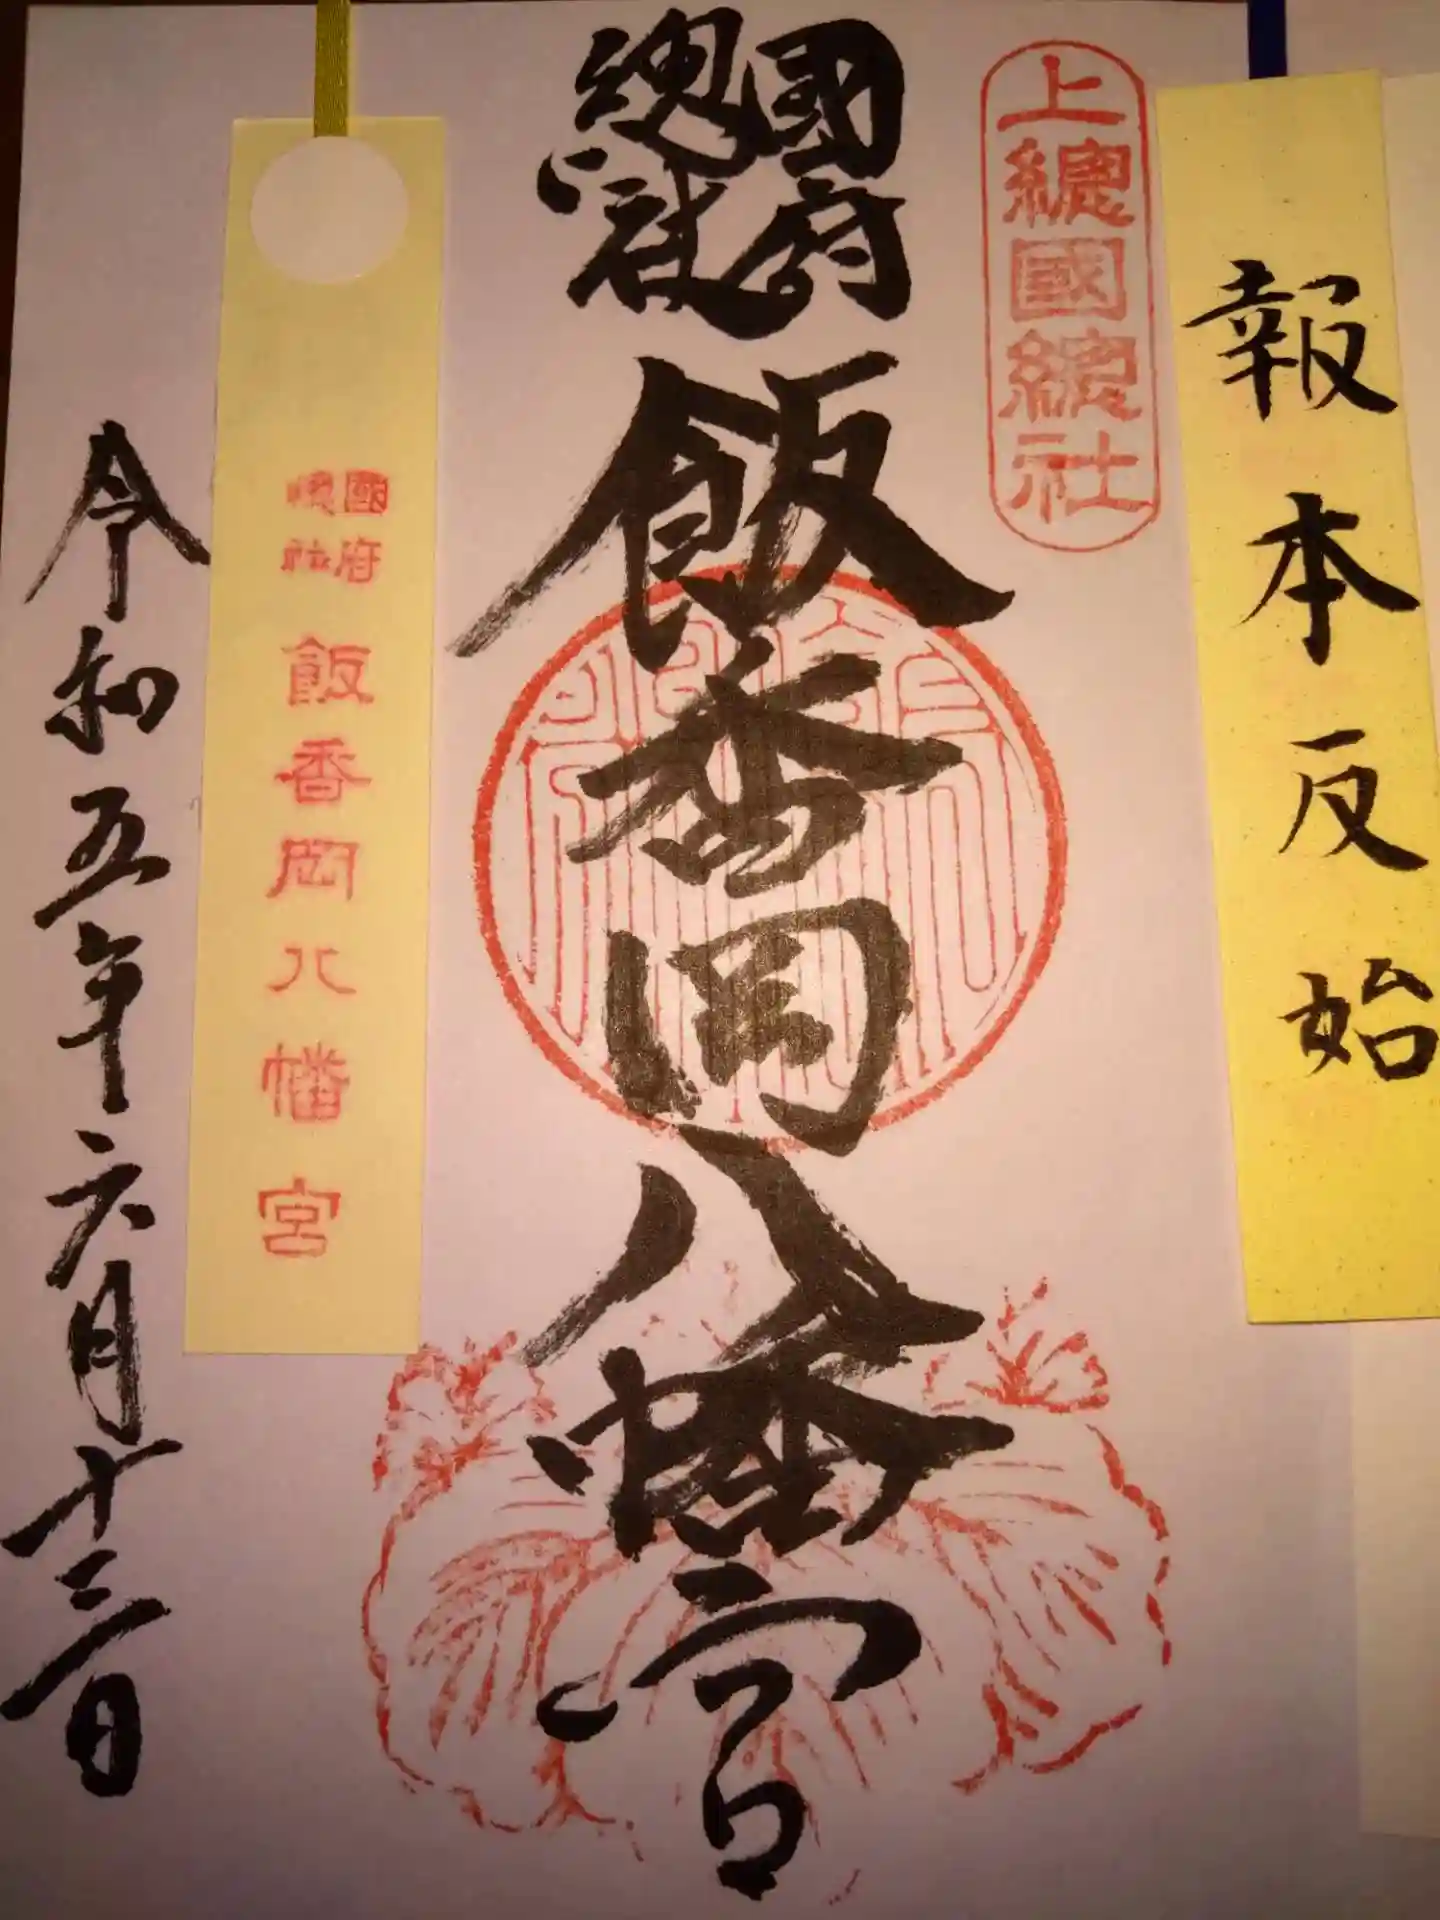 報本反始
上總國總社
國府
總社
飯香岡八幡宮
國府
總社
飯香岡八幡宮
令和五年六月十三日